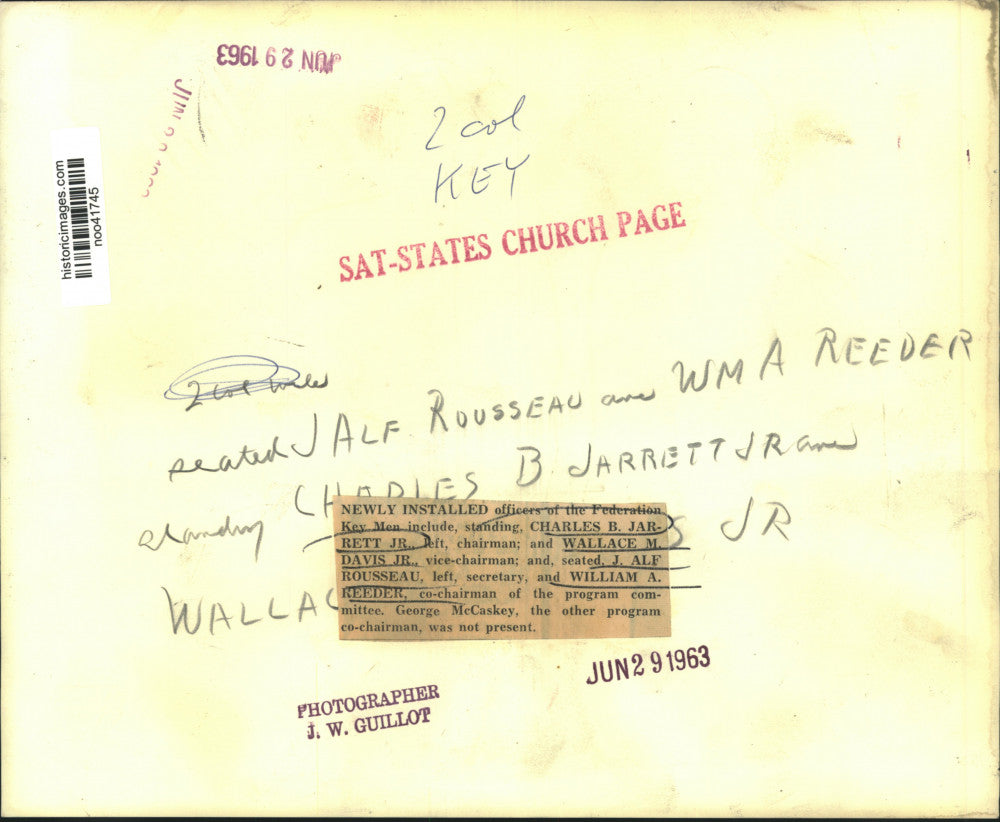 JUN 29 1963
JUN
historicimages.com
noo41745
2 col
KEY
SAT-STATES CHURCH PAGE
2 col
seated J ALF ROUSSEAU and WM A REEDER
standing CHARLES B. JARRETT JR and
WALLAC S JR
NEWLY INSTALLED officers of the Federation
Key Men include, standing, CHARLES B. JAR-
RETT JR., left, chairman; and WALLACE M.
DAVIS JR., vice-chairman; and, seated, J. ALF
ROUSSEAU, left, secretary, and WILLIAM A.
REEDER, co-chairman of the program com-
mittee. George McCaskey, the other program
co-chairman, was not present.
JUN 29 1963
PHOTOGRAPHER
J. W. GUILLOT